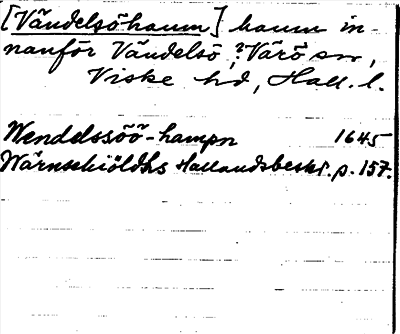 [Vändelsöhamn] hamn in-
nanför Vändelsö, ?Värö sn,
Viske hd, Hall. l.
Wendelssöö-hampn 1645
Wärnschiöldhs Hallandsbeskr. p. 157.